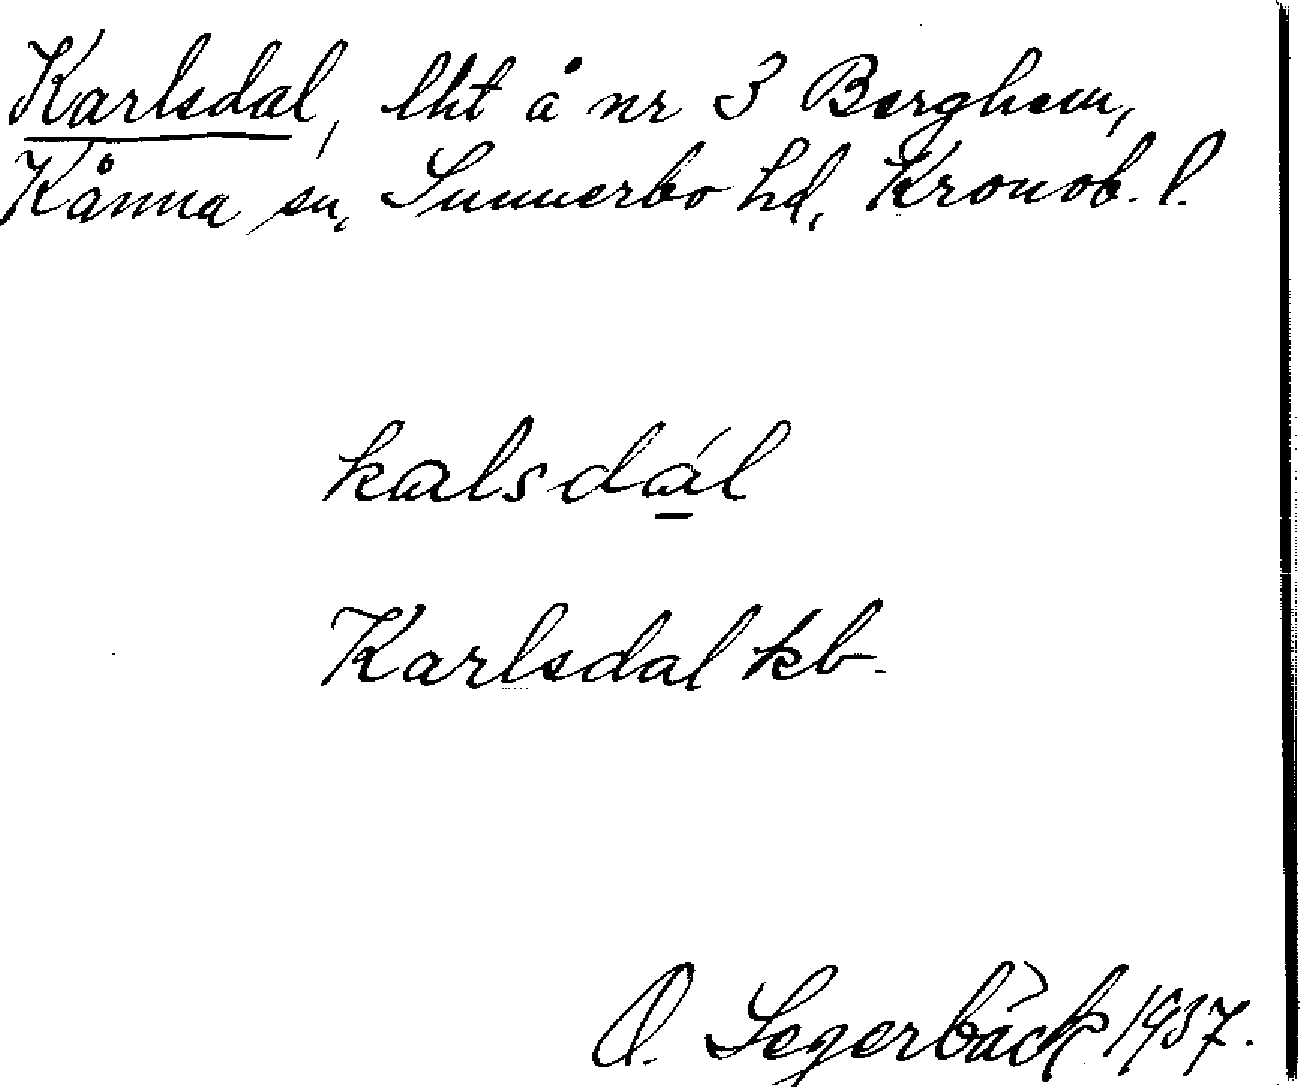 Karlsdal, lht å nr 3 Berghem,
Kånna sn, Sunnerbo hd, Kronob. l.
kalsdál
Karlsdal kb.
O. Segerbäck 1937.